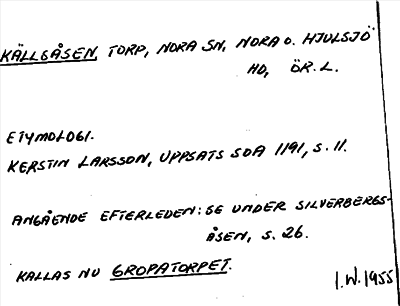 KÄLLGÅSEN, TORP, NORA SN, NORA O. HJULSJÖ
HD, ÖR. L.
ETYMOLOGI.
KERSTIN LARSSON, UPPSATS SOA 1191, S. 11.
ANGÅENDE EFTERLEDEN: SE UNDER SILVERBERGS-
ÅSEN, S. 26.
KALLAS NU GROPATORPET.
I.W. 1955